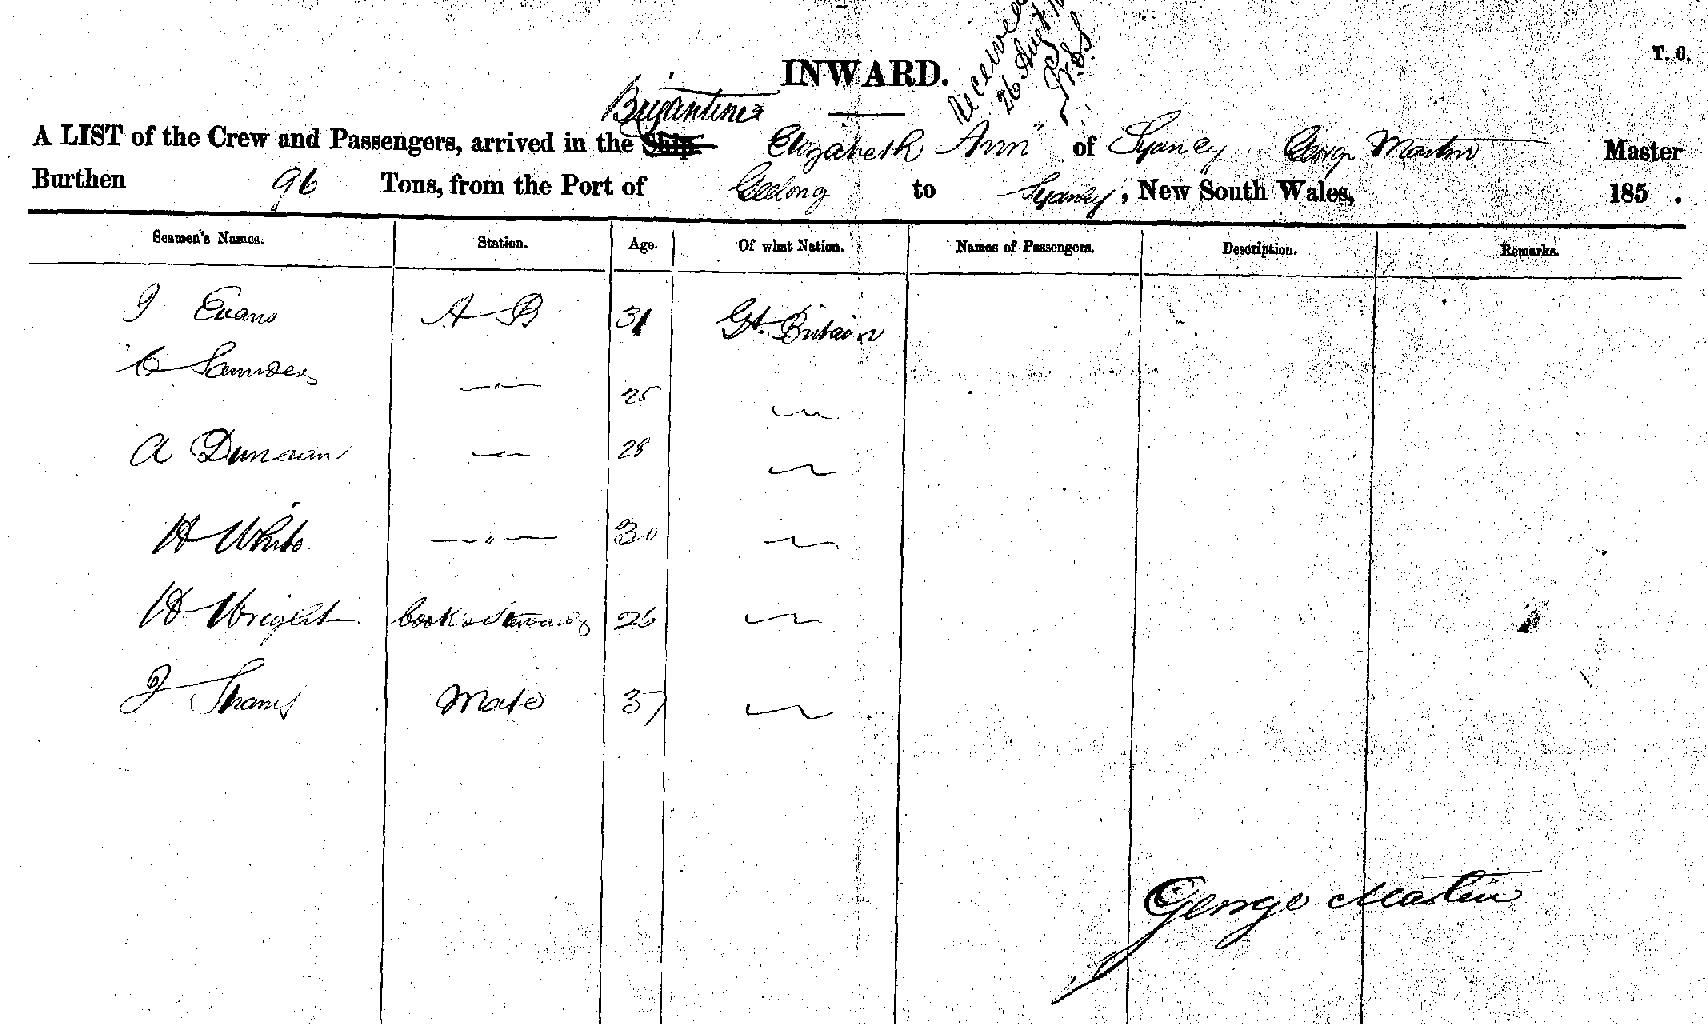 INWARD.
T. O.
Received
26 Augt
Brigantine
A LIST of the Crew and Passengers, arrived in the Ship Elizabeth Ann of Sydney George Martin Master
Burthen 96 Tons, from the Port of Geelong to Sydney, New South Wales, 185 .
Seamen's Names. Station. Age. Of what Nation. Names of Passengers. Description. Remarks.
J Evans A B 31 Gt. Britain
C Saunders —"— 25
A Duncan —"— 28
H White —"— 30
H Wright Cook & Steward 26
J Mate 37
George Martin